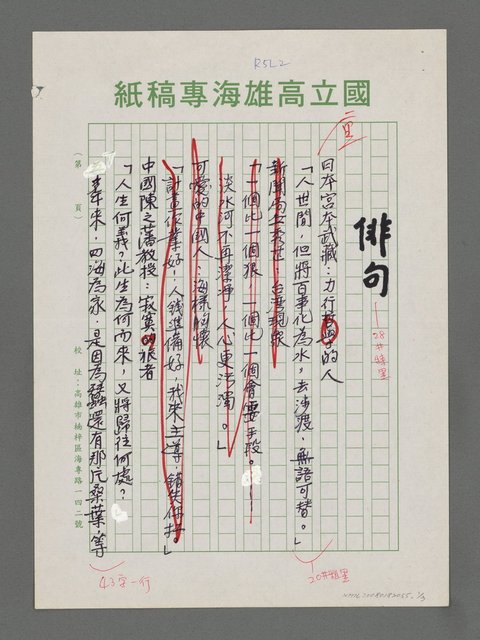 R5L2
國立高雄海專稿紙
俳句
28#特黑
日本宮本武藏：力行哲學的人
「人世間，但將百事化為水，去涉獵，無語可替。」
新聞局女秀芷：台灣現象
「一個比一個狠，一個比一個會耍手段。
淡水河不再潔淨，人心更污濁。」
可愛的中國人：海樣胸懷
好，人錢準備好，我來主導，錯失你扛。」
中國陳之藩教授：寂寞的旅者
「人生何義？此生為何而來，又將歸往何處？
年來，四海為家，是因為蠶還有那片桑葉，等
（第　頁）
校址：高雄市楠梓區海專路一四二號
43字一行
20#粗黑